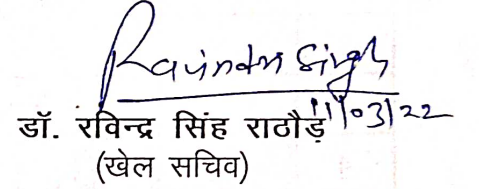 Ravindra Singh
11/03/22
डॉ. रविन्द्र सिंह राठौड़
(खेल सचिव)